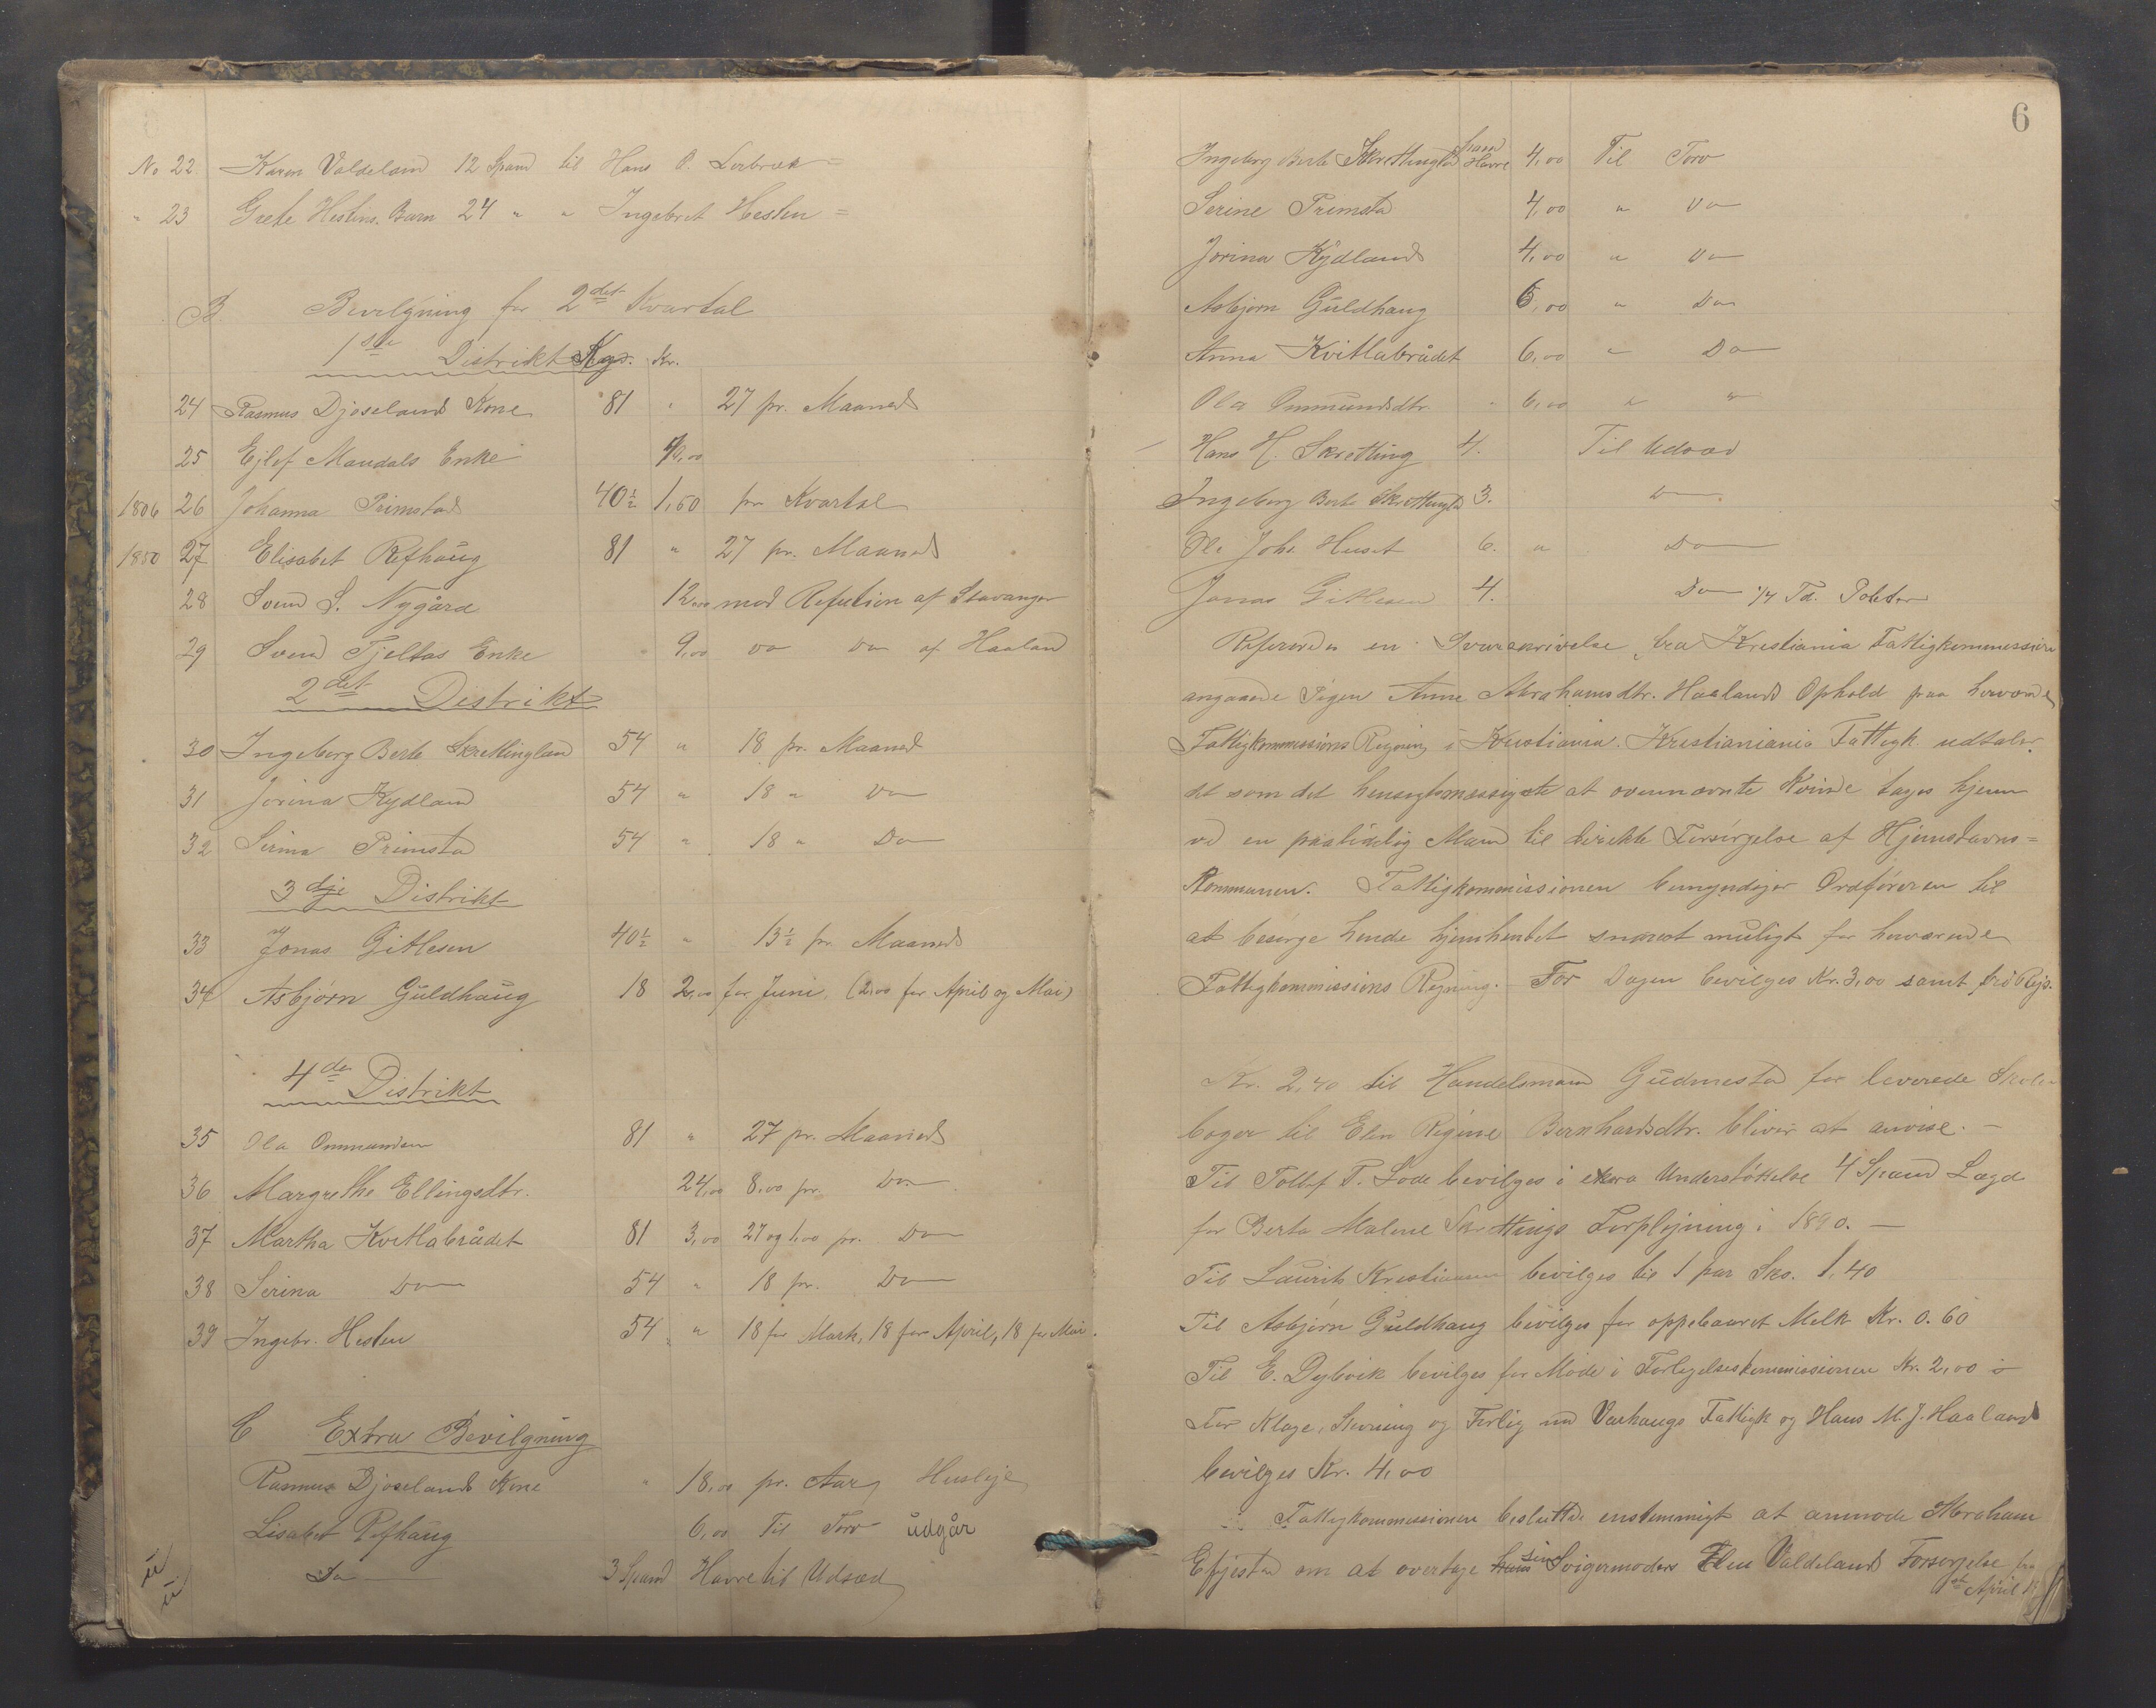 No 22. Karen Valdeland 12 Spand til Hans P. Lerbræk =
" 23 Grete Hestens Barn 24 " " Ingebret Hesten =
B. Bevilgning for 2det Kvartal
1ste Distrikt Kgr. Kr.
24 Rasmus Djøselands Kone 81 " 27 pr. Maaned
25 Ejlef Mandals Enke
1806 26 Johanna Primstad 40½ 1,60 pr Kvartal
1850 27 Elisabet Refhaug 81 " 27 pr. Maaned
28 Svend S. Nygård 12,00 mod Refusion af Stavanger
29 Svend Tjeltas Enke 9,00 Do Do af Haaland
2det Distrikt
30 Ingeborg Berte Skrettingland 54 " 18 pr. Maaned
31 Jorina Kydland 54 " 18 " Do
32 Serina Primsta 54 " 18 " Do
3dje Distrikt
33 Jonas Gitlesen 40½ " 13½ pr. Maaned
34 Asbjørn Guldhaug 18 2,00 for Juni. (2,00 for April og Mai)
4de Distrikt
35 Ola Ommundsen 81 " 27 pr. Maaned
36 Margrethe Ellingsdtr. 24,00 8,00 pr. Do
37 Martha Kvitlabrådet 81 3,00 27 og 1.00 pr. Do
38 Serina Do 54 " 18 pr. Do
39 Ingebr. Hesten 54 " 18 for Marts, 18 for April, 18 for Mai.
C Extra Bevilgning
Rasmus Djøselands Kone " 18,00 pr. Aar, Husleje
Lisabet Refhaug 6,00 Til Torv udgår
Do 3 Spand Havre til Udsæd
6
Ingeborg Berte Skrettingld Spand Havre 4,00 Til Torv
Serine Primsta 4,00 " Do
Jorina Kydland 4,00 " Do
Asbjørn Guldhaug 6,00 " Do
Anna Kvitlabrådet 6,00 " Do
Ola Ommundsdtr. " 6,00 " "
Hans H. Skretting 4. Til Udsæd
Ingeborg Berte Skrettingld 3. Do
Ole Johs Huset 6. " Do
Jonas Gitlesen 4. Do 1/4 Td. Poteter
Refereredes en Svarskrivelse fra Kristiania Fattigkommission
angaaende Pigen Anne Abrahamsdtr. Haalands Ophold paa herværende
Fattigkommissions Regning i Kristiania. Kristianiania Fattigk. udtaler
det som det hensigtsmæssigste at ovennævnte Kvinde tages hjem
ved en paalidelig Mand til direkte Forsørgelse af Hjemstavns=
Kommunen. Fattigkommissionen bemyndiger Ordføreren til
at besørge hende hjemhentet snarest muligt for herværende
Fattigkommissions Regning. For Dagen bevilges Kr. 3,00 samt fri Rejs.
Kr. 2,40 til Handelsmand Gudmestad for leverede Skole
bøger til Elen Regine Bernhardsdtr. bliver at anvise. —
Til Tollef T. Lode bevilges i extra Understøttelse 4 Spand Lægd
for Berta Malene Skrettings Forplejning i 1890. —
Til Laurits Kristiansen bevilges til 1 par Sko. 1,40
Til Asbjørn Guldhaug bevilges for oppebaaret Melk Kr. 0.60
Til E. Dybvik bevilges for Møde i Forligelseskommissionen Kr. 2,00
For Klage, Stevning og Forlig med Varhaugs Fattigk og Hans M. J. Haaland
bevilges Kr. 4,00
Fattigkommissionen besluttede enstemmigt at anmode Abraham
Efjestad om at overtage hans sin Svigermoders Elen Valdelands Forsørgelse fra
April